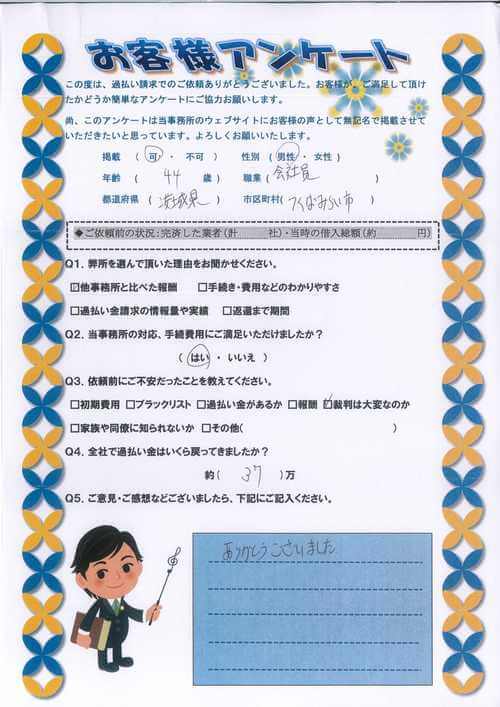 お客様アンケート
この度は、過払い請求でのご依頼ありがとうございました。お客様が、ご満足して頂け
たかどうか簡単なアンケートにご協力お願いします。
尚、このアンケートは当事務所のウェブサイトにお客様の声として無記名で掲載させて
いただきたいと思っています。よろしくお願いいたします。
掲載 （ 可 ・ 不可 ） 性別 （ 男性 ・ 女性 ）
年齢 （ 44 歳 ） 職業 （ 会社員 ）
都道府県 （ 茨城県 ） 市区町村( つくばみらい市 )
◆ご依頼前の状況：完済した業者（計 社）・当時の借入総額（約 円）
Q1. 弊所を選んで頂いた理由をお聞かせください。
☑他事務所と比べた報酬 □手続き・費用などのわかりやすさ
□過払い金請求の情報量や実績 □返還まで期間
Q2. 当事務所の対応、手続費用にご満足いただけましたか？
（ はい ・ いいえ ）
Q3. 依頼前にご不安だったことを教えてください。
□初期費用 □ブラックリスト □過払い金があるか □報酬 ☑裁判は大変なのか
□家族や同僚に知られないか □その他( )
Q4. 全社で過払い金はいくら戻ってきましたか？
約（ 37 ）万
Q5. ご意見・ご感想などございましたら、下記にご記入ください。
ありがとうございました